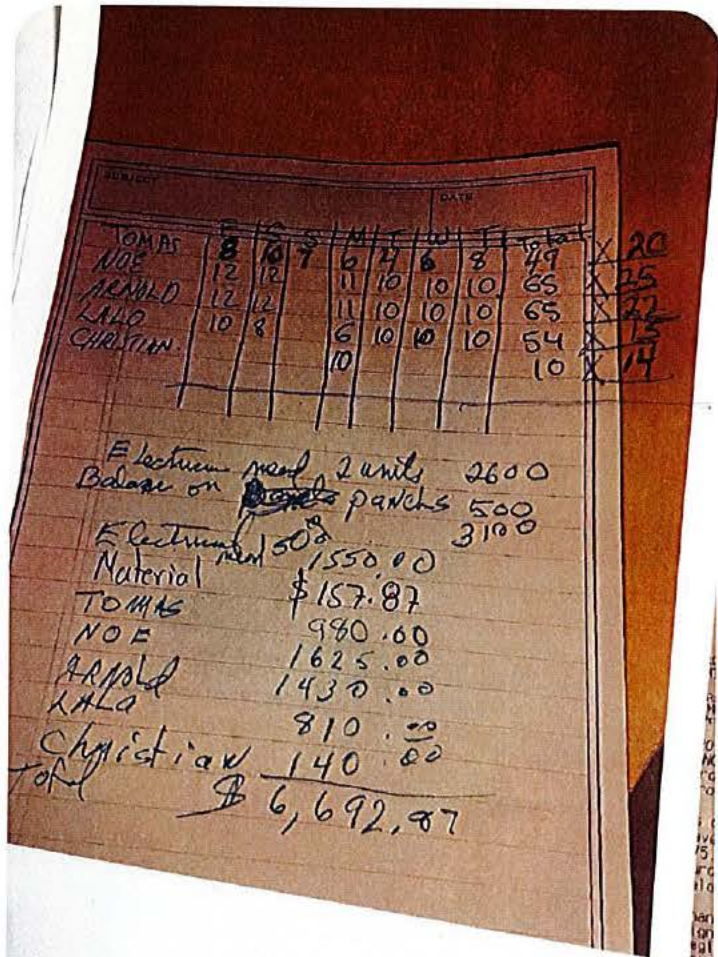 SUBJECT DATE
F S S M T W T Total
TOMAS 8 10 7 6 4 6 8 49 X 20
NOE 12 12 11 10 10 10 65 X 25
ARNOLD 12 12 11 10 10 10 65 X 22
LALO 10 8 6 10 10 10 54 X 15
CHRISTIAN. 10 10 X 14
2 units 2600
Balane on panels 500
3100
1550.00
Material $157.87
TOMAS 980.00
NOE 1625.00
ARNOLD 1430.00
LALO 810.00
Christian 140.00
Total $6,692.87